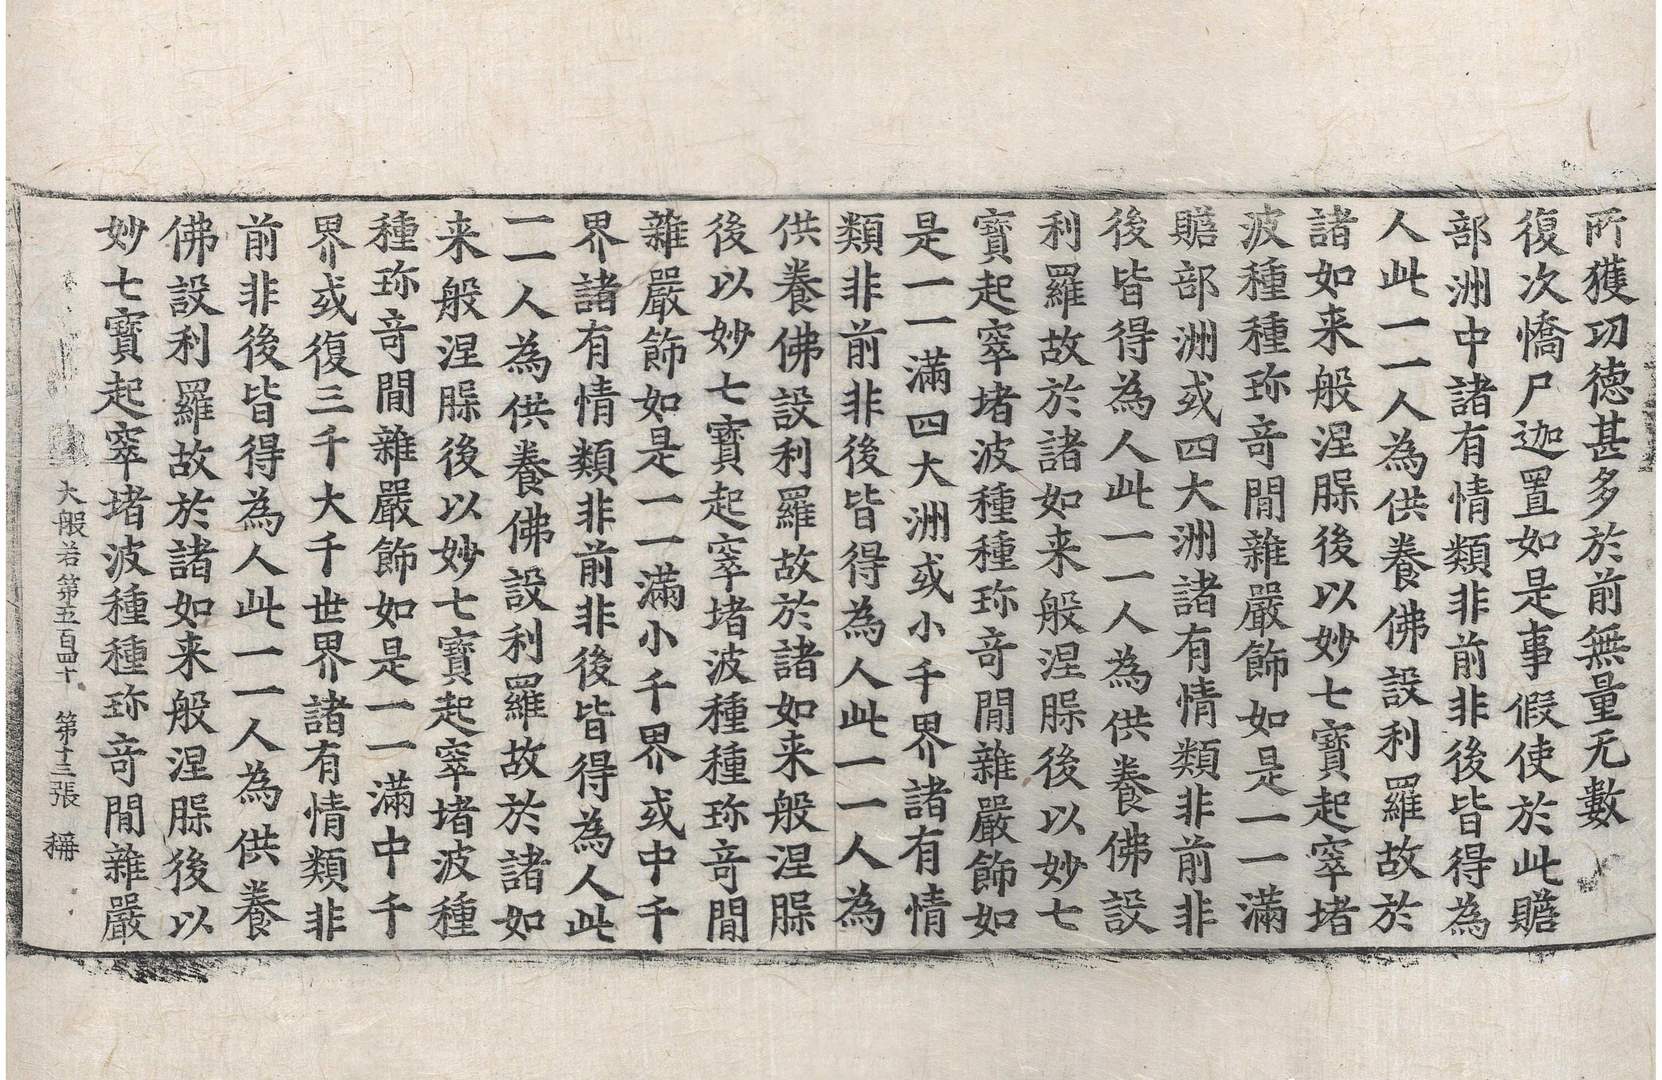 所獲功德甚多於前無量无數
復次憍尸迦置如是事假使於此贍
部洲中諸有情類非前非後皆得為
人此一一人為供養佛設利羅故於
諸如来般涅腺後以妙七寶起窣堵
波種種珎竒閒雜嚴飾如是一一滿
贍部洲或四大洲諸有情類非前非
後皆得為人此一一人為供養佛設
利羅故於諸如来般涅腺後以妙七
寶起窣堵波種種珎竒閒雜嚴飾如
是一一滿四大洲或小千界諸有情
類非前非後皆得為人此一一人為
供養佛設利羅故於諸如来般涅腺
後以妙七寶起窣堵波種種珎竒閒
雜嚴飾如是一一滿小千界或中千
界諸有情類非前非後皆得為人此
一一人為供養佛設利羅故於諸如
来般涅腺後以妙七寶起窣堵波種
種珎竒閒雜嚴飾如是一一滿中千
界或復三千大千世界諸有情類非
前非後皆得為人此一一人為供養
佛設利羅故於諸如来般涅腺後以
妙七寶起窣堵波種種珎竒閒雜嚴
大般若第五百四十 第十三張 稱